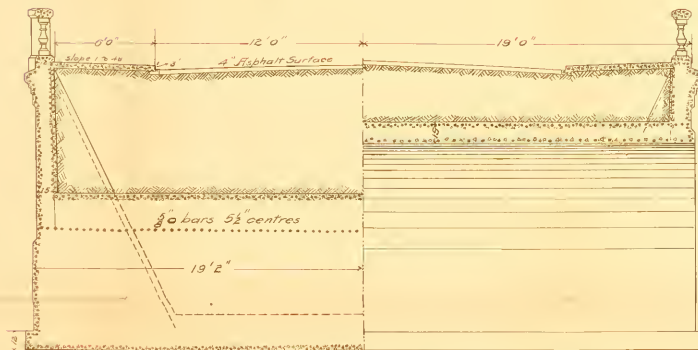 6'0"
12'0"
19'0"
slope 1 to 40
5"
4" Asphalt Surface
15"
15"
5/8" ⌀ bars 5½" centres
19'2"